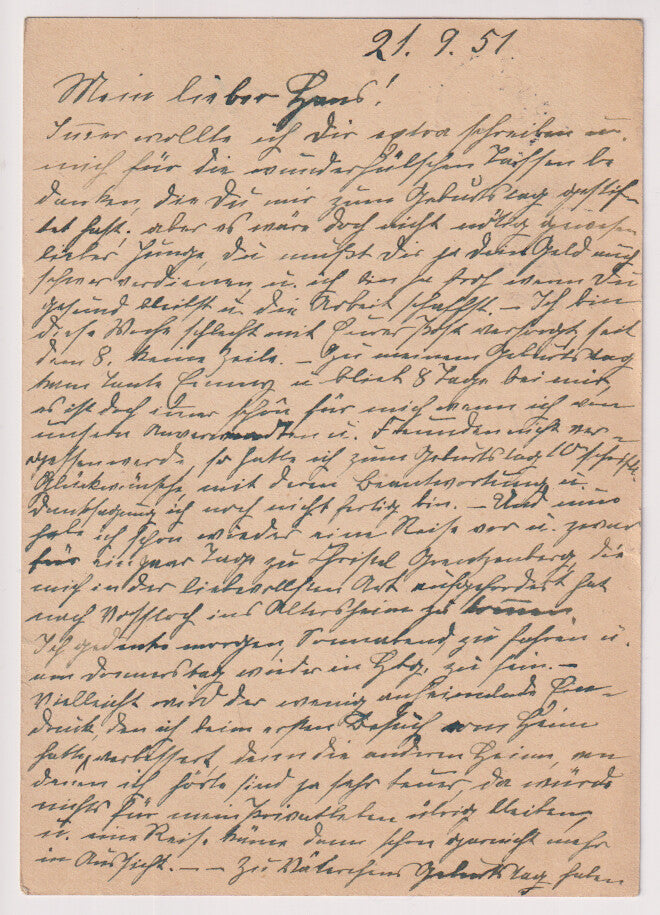 21. 9. 51
Mein lieber Hans!
Immer wollte ich Dir extra schreiben u.
mich für die wunderhübschen Tassen be
danken, die Du mir zum Geburtstag gestif-
tet hast; aber es wäre doch nicht nötig gewesen
lieber Junge, Du mußt Dir ja Dein Geld auch
schwer verdienen, u. ich bin ja froh wenn Du
gesund bleibst u. die Arbeit schaffst. – Ich bin
diese Woche schlecht mit Eurer Post versorgt, seit
dem 8. keine Zeile. – Zu meinem Geburtstag
kam Tante u. blieb 8 Tage bei mir,
es ist doch immer schön für mich wenn ich von
unsern Anverwandten u. Freunden nicht ver-
gessen werde, so hatte ich zum Geburtstag 10 schriftl.
Glückwünsche mit deren Beantwortung u.
Danksagung ich noch nicht fertig bin. – Und nun
habe ich schon wieder eine Reise vor u. zwar
für ein paar Tage zu Christel Grentzenberg, die
mich in der liebevollsten Art aufgefordert hat
nach Voßloch ins Altersheim zu kommen
Ich gedenke morgen, Sonnabend zu fahren u.
am Donnerstag wieder in Hbg. zu sein. –
Vielleicht wird der wenig anheimelnde Ein-
druck den ich beim ersten Besuch vom Heim
hatte, verbessert, denn die anderen Heime, von
denen ich hörte sind ja sehr teuer, da würde
nichts für mein Privatleben übrig bleiben,
u. eine Reise käme dann schon garnicht mehr
in Aussicht. – – Zu Väterchens Geburtstag haben